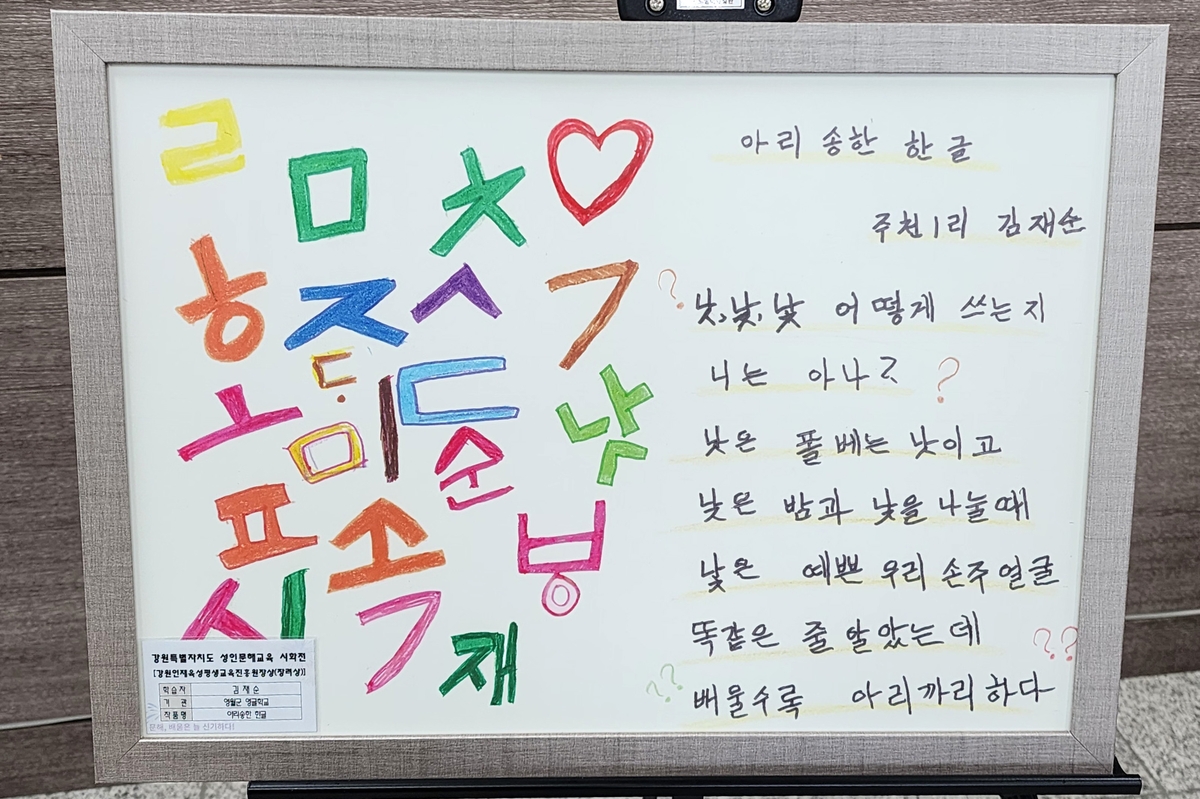 ㄹ
ㅁ ㅊ
ㅎ ㅈ ㅅ ㄱ
ㄷ
ㅗ ㅁ ㅣ ㄷ
순
봉
ㄱ 재
아리송한 한글
주천1리 김재순
? 낫, 낮, 낯 어떻게 쓰는지
니는 아나? ?
낫은 풀베는 낫이고
낮은 밤과 낮을 나눌때
낯은 예쁜 우리 손주 얼굴
똑같은 줄 알았는데 ??
?? 배울수록 아리까리하다
강원특별자치도 성인문해교육 시화전
[강원인재육성평생교육진흥원장상(장려상)]
학습자 김재순
기 관 영월군 영글학교
작품명 아리송한 한글
문해, 배움은 늘 신기하다!